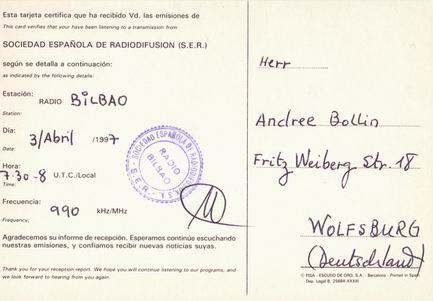 Esta tarjeta certifica que ha recibido Vd. las emisiones de
This card verifies that you have been listening to a transmission from
SOCIEDAD ESPAÑOLA DE RADIODIFUSION (S.E.R.)
según se detalla a continuación:
as indicated by the following details:
Estación: RADIO BILBAO
Station:
Día: 3/Abril /1997
Date:
Hora: 7.30-8 U.T.C./Local
Time:
Frecuencia: 990 kHz/MHz
Frequency:
Agradecemos su informe de recepción. Esperamos continúe escuchando
nuestras emisiones, y confiamos recibir nuevas noticias suyas.
Thank you for your reception report. We hope you will continue listening to our programs, and
we look forward to hearing from you again.
SOCIEDAD ESPAÑOLA DE RADIODIFUSION
RADIO
BILBAO
S.E.R.
Herr
Andree Bollin
Fritz Weiberg Str. 18
WOLFSBURG
(Deutschland)
© FISA - ESCUDO DE ORO, S.A. - Barcelona - Printed in Spain
Dep. Legal B. 25684-XXXIII